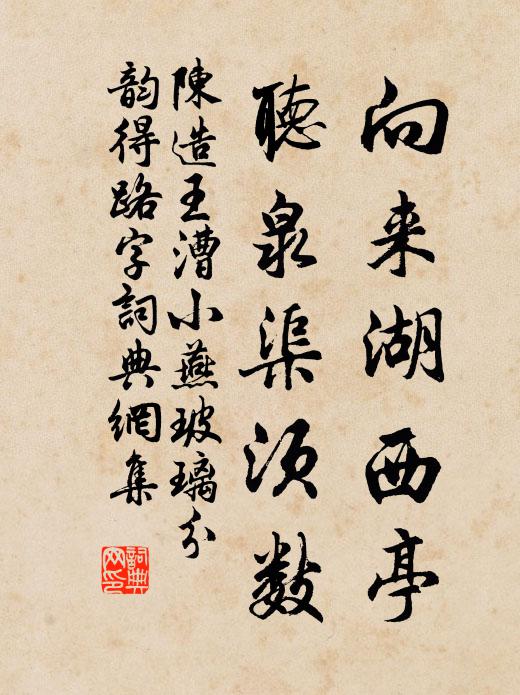 向来湖西亭
聽泉渠須數
陳造王漕小燕玻璃分
韵得路字詞典網集
詞典网印